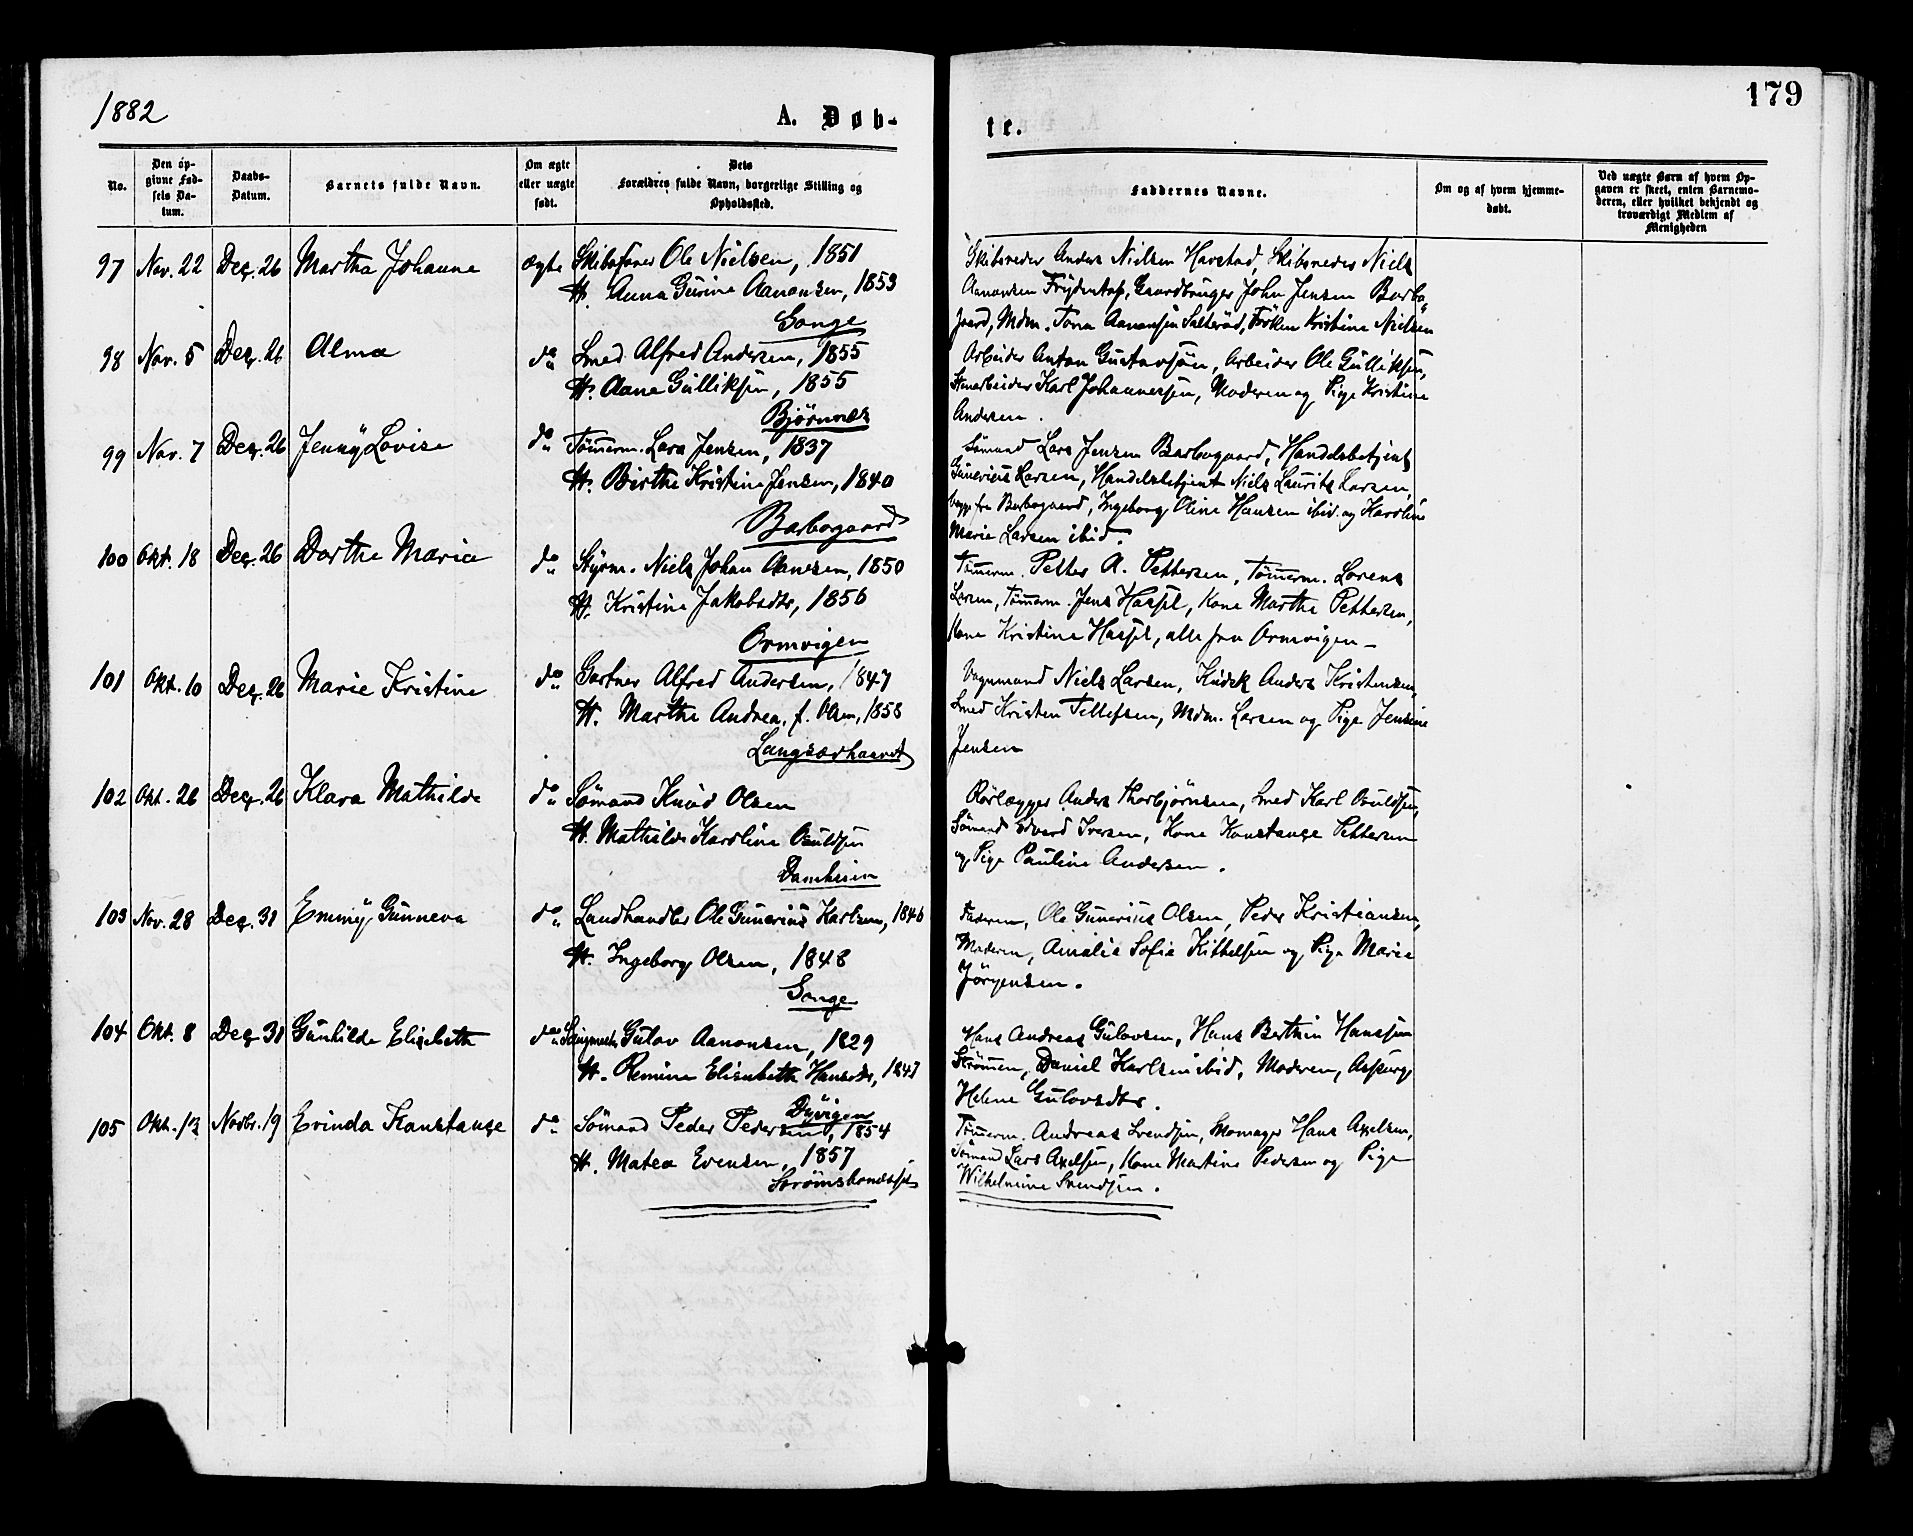 1882
A. Døb-
te.
179
No.
Den op-
givne Fød-
sels Da-
tum.
Daabs-
Datum.
Barnets fulde Navn.
Om ægte
eller uægte
født.
Dets
Forældres fulde Navn, borgerlige Stilling og
Opholdssted.
Faddernes Navne.
Om og af hvem hjemme-
døbt.
Ved uægte Børn af hvem Op-
gaven er skeet, enten Barnemo-
deren, eller hvilket bekjendt og
troværdigt Medlem af
Menigheden
97 Nov. 22 Dez. 26 Martha Johanne ægte Skibsfører Ole Nielsen, 1851
H. Anna Gurine Aanonsen, 1853
Songe
Skibsreder Anders Nielsen Havstad, Skibsreder Niels
Aanonsen Frydentop, Gaardbruger John Jensen Barbo-
gaard, Mdm. Tona Aanonsen Salterød, Frøken Kristine Nielsen
98 Nov. 5 Dez. 26 Alma do Smed Alfred Andersen, 1855
H. Aane Gulliksen, 1855
Bjørnnes
Arbeider Anton Gustavsøn, Arbeider Ole Gulliksen,
Stenarbeider Karl Johannessen, Moderen og Pige Kristine
Andersen.
99 Nov. 7 Dez. 26 Jenny Lovise do Tømerm. Lars Jensen, 1837
H. Birthe Kristine Jensen, 1840
Barbogaard
Sømand Lars Jensen Barbogaard, Handelsbetjent
Gunerius Larsen, Handelsbetjent Niels Laurits Larsen,
begge fra Barbogaard, Ingeborg Oline Hansen ibid. og Karoline
Marie Larsen ibid.
100 Okt. 18 Dez. 26 Dorthe Marie do Styrm. Niels Johan Aanesen, 1850
H. Kristine Jakobsdtr, 1856
Ormvigen
Tømerm. Petter A. Pettersen, Tømerm. Lorens
Larsen, Tømerm. Jens Hassel, Kone Marthe Pettersen,
Kone Kristine Hassel, alle fra Ormvigen
101 Okt. 10 Dez. 26 Marie Kristine do Gartner Alfred Andersen, 1847
H. Marthe Andrea, f. Olsen, 1858
Langsævhauvet
Vognmand Niels Larsen, Kudsk Anders Kristensen,
Smed Kristen Tellefsen, Mdm. Larsen og Pige Jensine
Jensen
102 Okt. 26 Dez. 26 Klara Mathilde do Sømand Knud Olsen
H. Mathilde Karoline Osuldsen
Damheien
Rørlægger Anders Thorbjørnsen, Smed Karl Osuldsen,
Sømand Edvard Iversen, Kone Konstanse Pettersen
og Pige Pauline Andersen.
103 Nov. 28 Dez. 31 Emmy Gunneva do Landhandler Ole Gunerius Karlsen, 1846
H. Ingeborg Olsen, 1848
Songe
Faderen, Ole Gunerius Olsen, Peder Kristiansen,
Moderen, Amalie Sofie Kittelsen og Pige Marie
Jørgensen.
104 Okt. 8 Dez 31 Gunhilde Elisebeth do Gulov Aanonsen, 1829
H. Remine Elisabeth Hansdtr, 1847
Dyvigen
Hans Andreas Gulovsen, Hans Berthin Hanssen
Strømmen, Daniel Karlsen ibid, Moderen, Aspurg
Helene Gulovsdtr.
105 Okt. 13 Novbr. 19 Evinda Konstanse do Sømand Peder Pedersen, 1854
H. Matea Evensen, 1857
Strømsbomds
Tømerm. Andreas Svendsen, Skomager Hans Axelsen,
Sømand Lars Axelsen, Kone Martine Pedersen og Pige
Wilhelmine Svendsen.